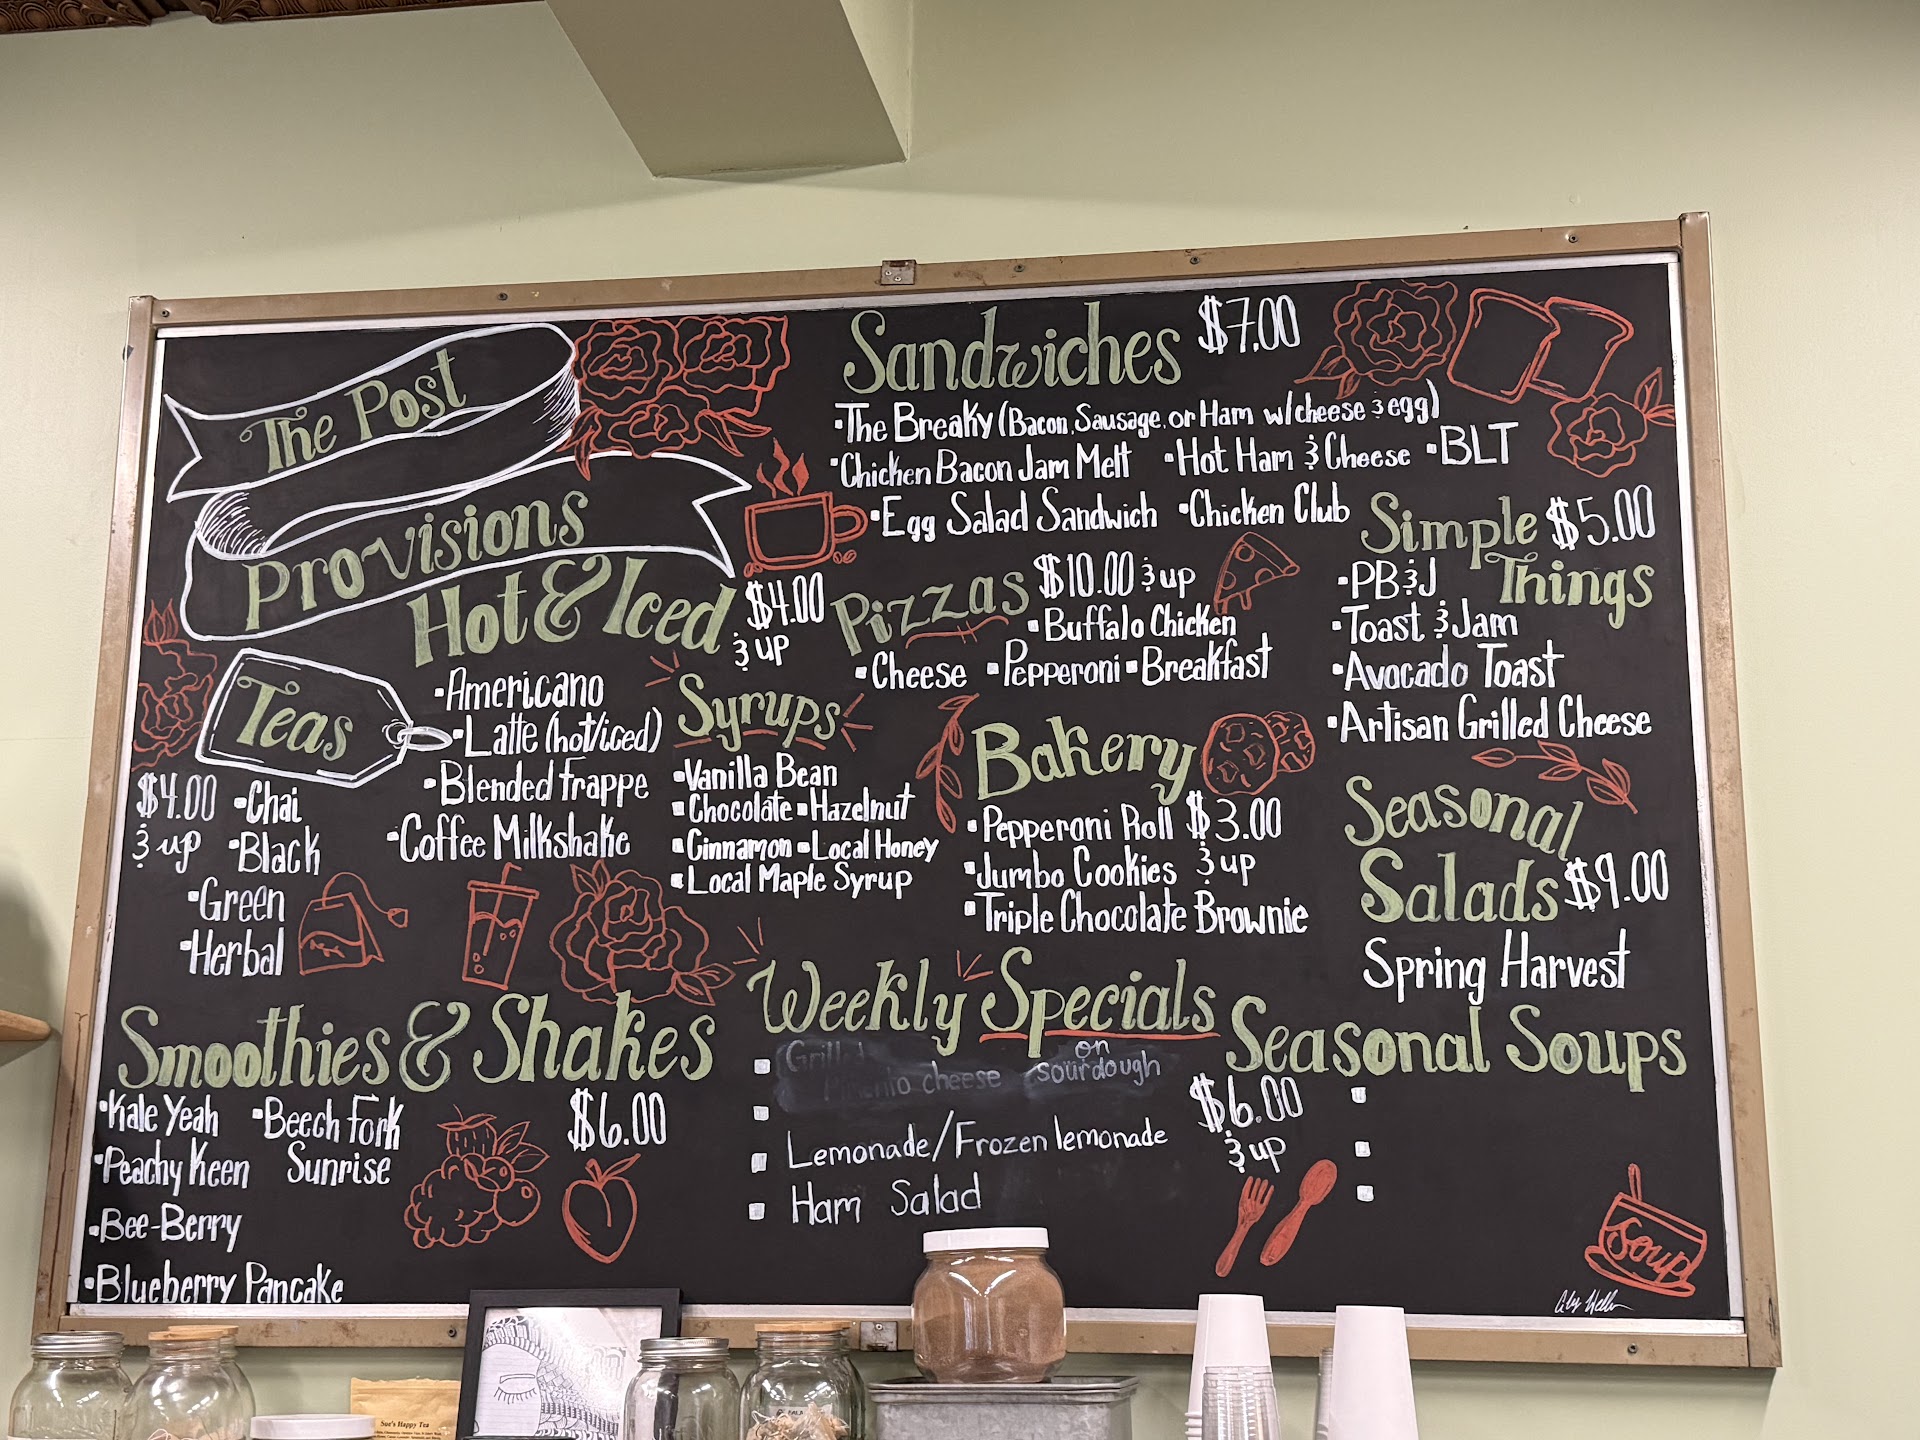 The Post
Provisions
Hot & Iced $4.00
& up
• Americano
• Latte (hot/iced)
• Blended Frappe
• Coffee Milkshake
Teas
$4.00
& up
• Chai
• Black
• Green
• Herbal
Syrups
• Vanilla Bean
• Chocolate • Hazelnut
• Cinnamon • Local Honey
• Local Maple Syrup
Smoothies & Shakes
$6.00
• Kale Yeah
• Peachy Keen
• Bee-Berry
• Blueberry Pancake
• Beech Fork
Sunrise
Sandwiches $7.00
• The Breaky (Bacon, Sausage, or Ham w/cheese & egg)
• Chicken Bacon Jam Melt • Hot Ham & Cheese • BLT
• Egg Salad Sandwich • Chicken Club
Pizzas $10.00 & up
• Buffalo Chicken
• Cheese • Pepperoni • Breakfast
Simple $5.00
Things
• PB&J
• Toast & Jam
• Avocado Toast
• Artisan Grilled Cheese
Bakery
• Pepperoni Roll $3.00
• Jumbo Cookies & up
• Triple Chocolate Brownie
Seasonal
Salads $9.00
Spring Harvest
Weekly Specials
Grilled
Pimento cheese on sourdough
Lemonade/Frozen lemonade
Ham Salad
$6.00
& up
Seasonal Soups
Soup
Sue's Happy Tea